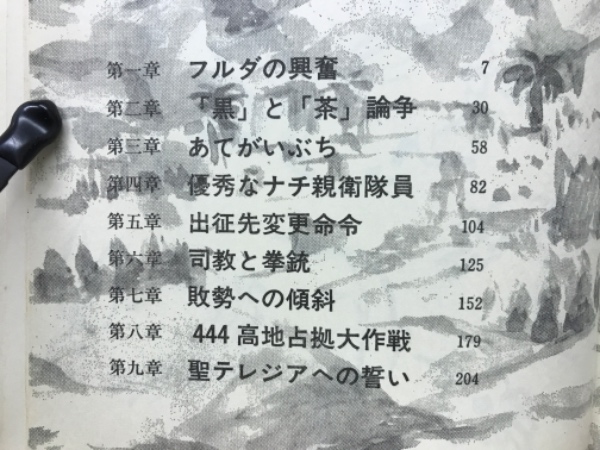 第一章 フルダの興奮 7
第二章 「黒」と「茶」論争 30
第三章 あてがいぶち 58
第四章 優秀なナチ親衛隊員 82
第五章 出征先変更命令 104
第六章 司教と拳銃 125
第七章 敗勢への傾斜 152
第八章 444高地占拠大作戦 179
第九章 聖テレジアへの誓い 204